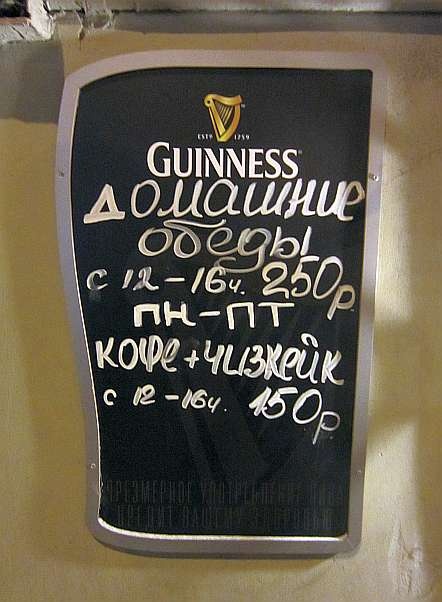 ESTD 1759
GUINNESS
Домашние
обеды
с 12-16ч. 250р.
ПН-ПТ
кофе+чизкейк
с 12-16ч. 150р.
ЧРЕЗМЕРНОЕ УПОТРЕБЛЕНИЕ ПИВА
ВРЕДИТ ВАШЕМУ ЗДОРОВЬЮ